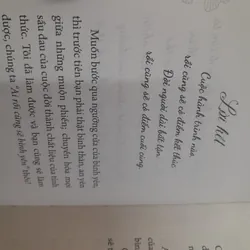 Lời kết
Cuộc hành trình nào,
rồi cũng sẽ có điểm kết thúc.
Đời người dài bất tận,
rồi cũng sẽ có điểm cuối cùng.
Muốn bước qua ngưỡng cửa của bình yên,
thì trước tiên bạn phải thật bình thản, an yên
giữa những muộn phiền; chuyển hóa mọi
sầu đau của cuộc đời thành chất liệu của tỉnh
thức. Tôi đã làm được và bạn cũng sẽ làm
được, chúng ta "Ai rồi cũng sẽ bình yên" thôi!